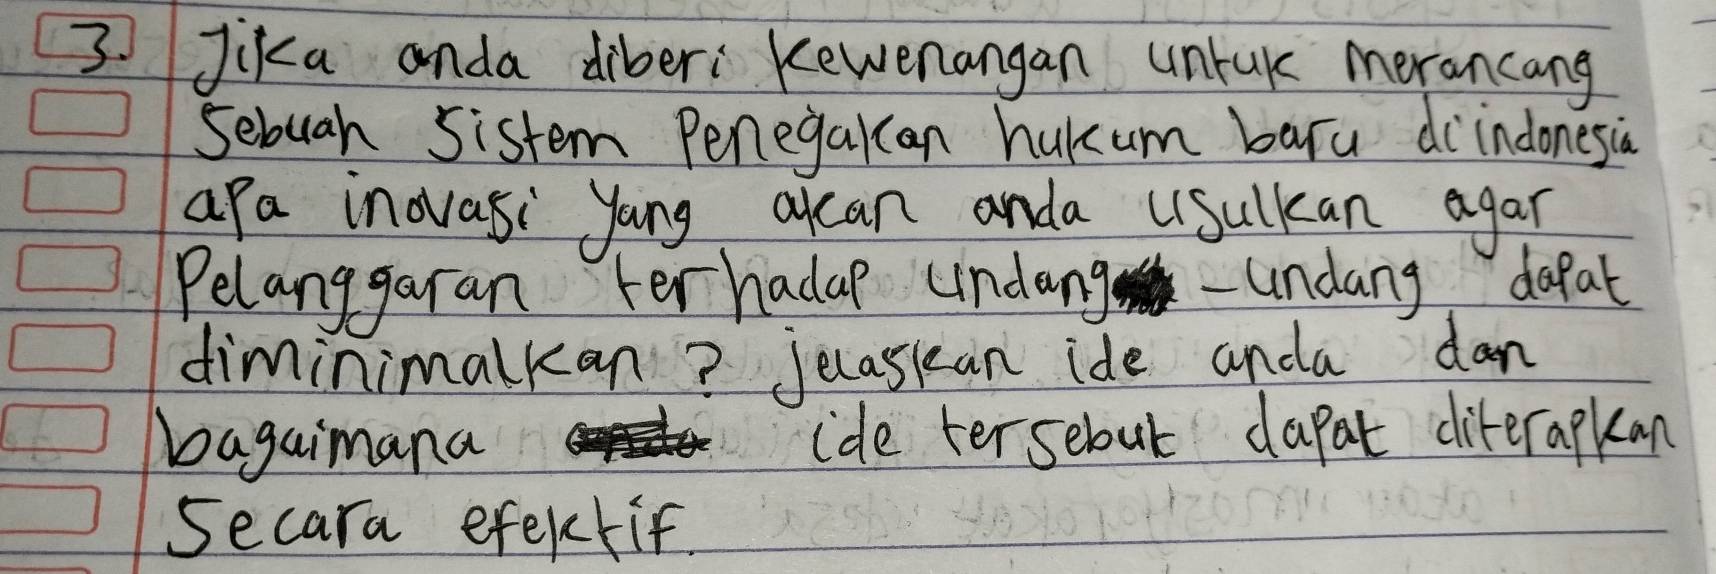 3. Jika anda diberi kewenangan untuk merancang
sebuah sistem penegakan hukum baru di indonesia
apa inovasi yang akan anda usulkan agar
pelanggaran terhadap undang -undang dapat
diminimalkan? jelaskan ide anda dan
bagaimana ide tersebut dapat diterapkan
secara efektif.